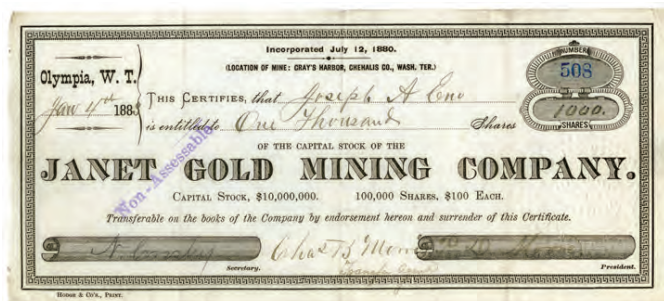 Incorporated July 12, 1880.
(LOCATION OF MINE: GRAY'S HARBOR, CHEHALIS CO., WASH. TER.)
NUMBER
508
Olympia, W. T.
Jan 4th 1883
THIS CERTIFIES, that Joseph A Eno
1000.
is entitled to One Thousand Shares
SHARES
OF THE CAPITAL STOCK OF THE
JANET GOLD MINING COMPANY.
Non-Assessable
CAPITAL STOCK, $10,000,000. 100,000 SHARES, $100 EACH.
Transferable on the books of the Company by endorsement hereon and surrender of this Certificate.
Chas B
Secretary.
President.
HODGE & CO'S., PRINT.